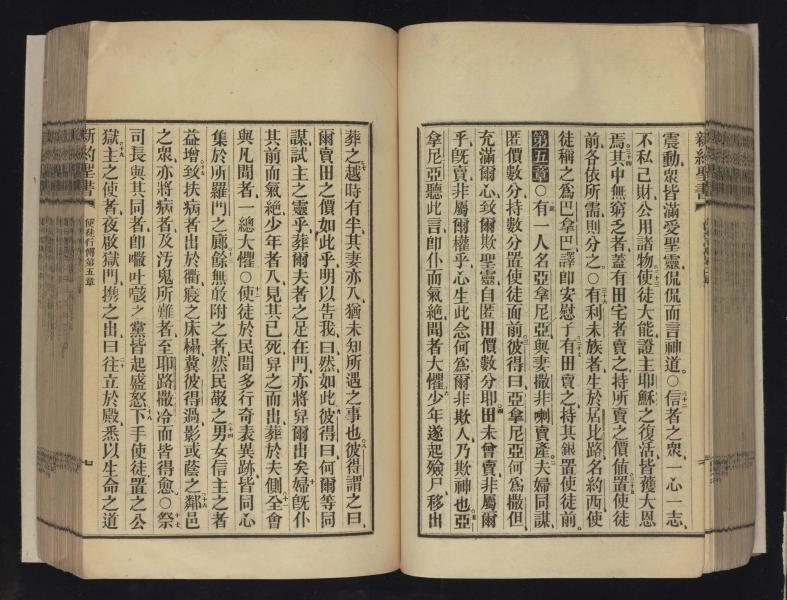 新約聖書
震動、眾皆滿受聖靈、侃侃而言神道。○三十二信者之眾、一心一志、
不私己財、公用諸物、三十三使徒大能、證主耶穌之復活、皆獲大恩
焉、三十四其中無窮乏者、蓋有田宅者賣之、持所賣之價、三十五值置使徒
前、各依所需則分之。○三十六有利未族者、生於居比路、名約西、使
徒稱之為巴拿巴、譯即安慰子、三十七有田賣之、持其銀、置使徒前、
第五章○一有一人名亞拿尼亞、與妻撒非喇賣產、二夫婦同謀、
匿價數分、持數分置使徒面前、三彼得曰、亞拿尼亞、何為撒但
充滿爾心、致爾欺聖靈、自匿田價數分耶、四田未曾賣、非屬爾
乎、既賣、非屬爾權乎、心生此念何為、爾非欺人、乃欺神也、五亞
拿尼亞聽此言、即仆而氣絕、聞者大懼、六少年遂起殮尸、移出
葬之、七越時有半、其妻亦入、猶未知所遇之事也、八彼得謂之曰、
爾賣田之價如此乎、明以告我、曰、然、如此、九彼得曰、何爾等同
謀試主之靈乎、葬爾夫者之足在門、亦將舁爾出矣、十婦既仆
其前而氣絕、少年者入、見其已死、舁之而出、葬於夫側、十一全會
與凡聞者、一總大懼。○十二使徒於民間多行奇表異跡、皆同心
集於所羅門之廊、十三餘無敢附之者、然民敬之、十四男女信主之者
益增、十五致扶病者出於衢、寢之床榻、冀彼得過、影或蔭之、十六鄰邑
之眾、亦將病者、及污鬼所難者、至耶路撒冷、而皆得愈。○十七祭
司長與其同者、即嘥吐嘅之黨、皆起盛怒、十八下手使徒、置之公
獄、十九主之使者、夜啟獄門、携之出曰、二十往立於殿、悉以生命之道
新約聖書
使徒行傳第五章